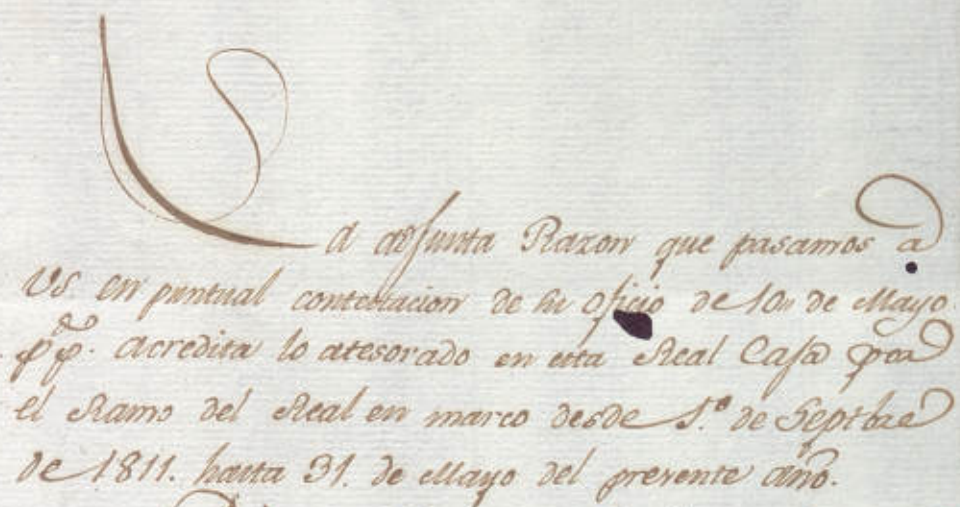 La adjunta Razon que pasamos a
VS. en puntual contextacion de su oficio de 10,, de Mayo
pp. acredita lo atesorado en esta Real Casa por
el Ramo del Real en marco desde 1.º de Septbre
de 1811. hasta 31. de Mayo del presente año.